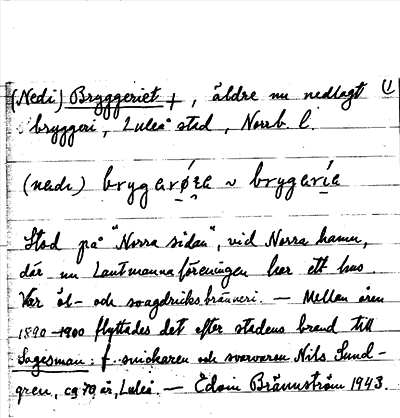 (Nedi) Bryggeriet +, äldre nu nedlagt 1)
bryggeri, Luleå stad, Norrb. l.
Stod på "Norra sidan", vid Norra hamn,
där nu Lantmannaföreningen har ett hus.
Var öl- och svagdricksbränneri. — Mellan åren
1890-1900 flyttades det efter stadens brand till
Sagesman: f. snickaren och svarvaren Nils Sund-
gren, ca 70 år, Luleå. — Edvin Brännström 1943.